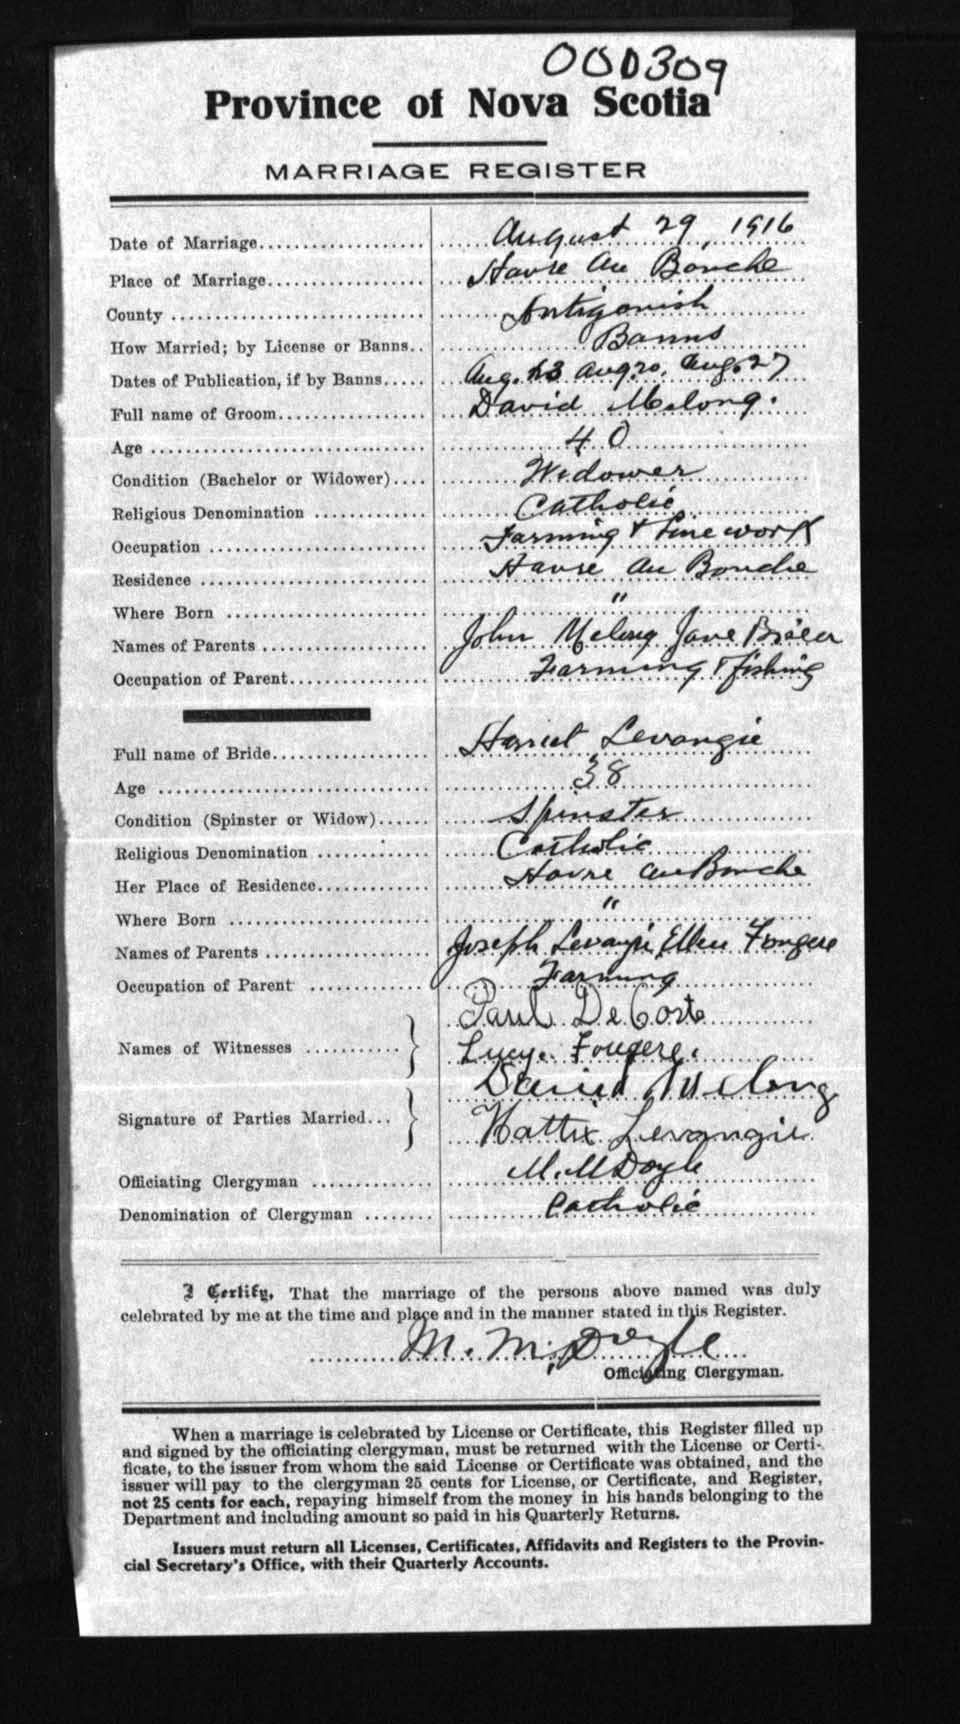 000309
Province of Nova Scotia
MARRIAGE REGISTER
Date of Marriage................... August 29, 1916
Place of Marriage.................. Havre Au Bouche
County ............................ Antigonish
How Married; by License or Banns.. Banns
Dates of Publication, if by Banns..... Aug. 13 Aug 20. Aug. 27
Full name of Groom................. David Melong.
Age ............................... 40
Condition (Bachelor or Widower).... Widower
Religious Denomination ............. Catholic
Occupation ......................... Farming & Line work
Residence .......................... Havre Au Bouche
Where Born ......................... "
Names of Parents ................... John Melong Jane
Occupation of Parent................ Farming & fishing
Full name of Bride.................. Harriet Levangie
Age ................................ 38
Condition (Spinster or Widow)...... Spinster
Religious Denomination ............. Catholic
Her Place of Residence.............. Havre au Bouche
Where Born ......................... "
Names of Parents ................... Joseph Levangie Ellen Fougere
Occupation of Parent ............... Farming
Paul DeCoste
Names of Witnesses ........... } Lucy. Fougere.
David Melong
Signature of Parties Married... } Hattie Levangie
Officiating Clergyman .............. M. M Doyle
Denomination of Clergyman ........ Catholic
I Certify, That the marriage of the persons above named was duly
celebrated by me at the time and place and in the manner stated in this Register.
M. M. Doyle
Officiating Clergyman.
When a marriage is celebrated by License or Certificate, this Register filled up
and signed by the officiating clergyman, must be returned with the License or Certi-
ficate, to the issuer from whom the said License or Certificate was obtained, and the
issuer will pay to the clergyman 25 cents for License, or Certificate, and Register,
not 25 cents for each, repaying himself from the money in his hands belonging to the
Department and including amount so paid in his Quarterly Returns.
Issuers must return all Licenses, Certificates, Affidavits and Registers to the Provin-
cial Secretary's Office, with their Quarterly Accounts.